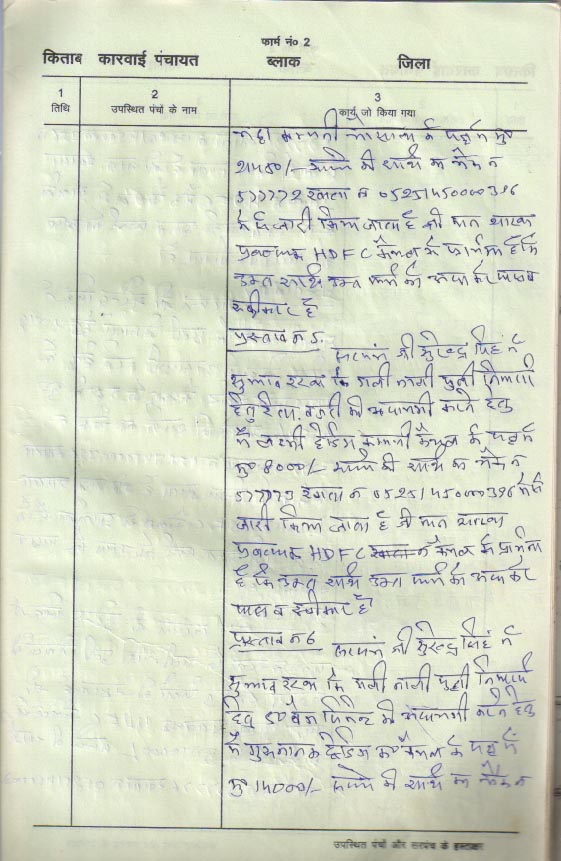 फार्म नं० 2
किताब कारवाई पंचायत ब्लाक जिला
1 2 3
तिथि उपस्थित पंचों के नाम कार्य जो किया गया
कम्पनी के पक्ष में रु
21450/- रूपये की राशि का चैक न
577772 खाता न 05251450000396
से जारी किया जाता है
प्रबन्धक HDFC कैथल से प्रार्थना है कि
उक्त राशि उक्त फर्म को अदा कर पास व
स्वीकार है
प्रस्ताव न 5. सरपंच श्री सुरेन्द्र सिंह ने
सुझाव रखा कि गली नाली पुली निर्माण
हेतु रेता बजरी की अदायगी करने हेतु
मै ट्रेडिंग कम्पनी कैथल के पक्ष में
रु 8000/- रूपये की राशि का चैक न
577773 खाता न 05251450000396 से
जारी किया जाता है
प्रबन्धक HDFC खाता न कैथल से प्रार्थना
है कि उक्त राशि उक्त फर्म को अदा कर
पास व स्वीकार है
प्रस्ताव न 6 सरपंच श्री सुरेन्द्र सिंह ने
सुझाव रखा कि गली नाली पुली निर्माण
हेतु की अदायगी करने हेतु
मै गुरूनानक ट्रेडिंग क० कैथल के पक्ष में
रु 14000/- रूपये की राशि का चैक न
उपस्थित पंचों और सरपंच के हस्ताक्षर